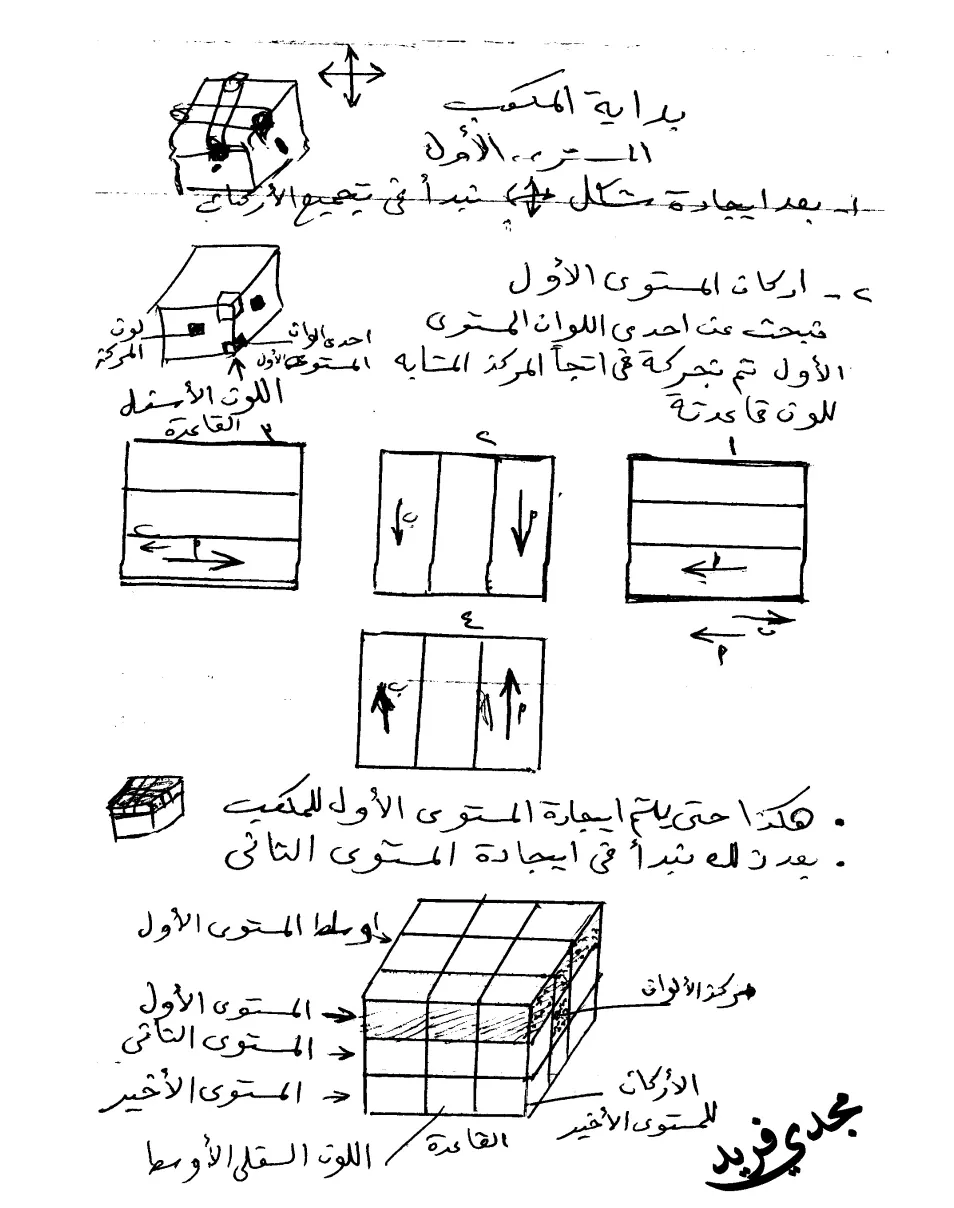 بداية المكعب
المستوى الأول
١- بعد ايجادة شكل نبدأ في تجميع الأركان
٢- اركان المستوى الأول
نبحث عن احدى اللوان المستوى
الأول ثم نحركة في اتجاً المركز المشابه
للون قاعدتة
لون المركز
احدى الوان المستوى الأول
اللون الأسفل
القاعدة
١
أ
أ
ب
٢
أ
ب
٣
أ
ب
٤
أ
ب
• هكذا حتى يتم ايجادة المستوى الأول للمكعب
• بعد ذلك نبدأ في ايجادة المستوى الثاني
اوسط المستوى الأول
المستوى الأول
المستوى الثاني
المستوى الأخير
مركز الألوان
الأركان
للمستوى الأخير
القاعدة
اللون السفلى الأوسط
مجدي فريد